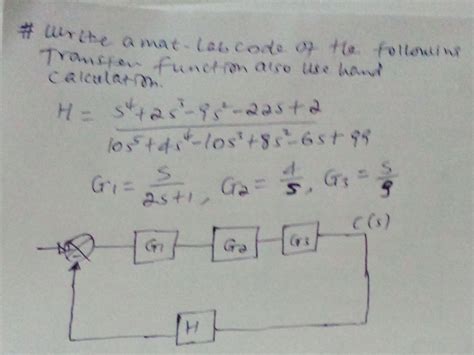 # Write a mat-lab code of the following
Transfer function also use hand
Calculation.
H = s⁴+2s³-9s²-22s+2 / 10s⁵+4s⁴-10s³+8s²-6s+99
G1 = s / 2s+1 , G2 = 4 / 5 , G3 = 5 / 9
C(s)
G1 G2 G3
H